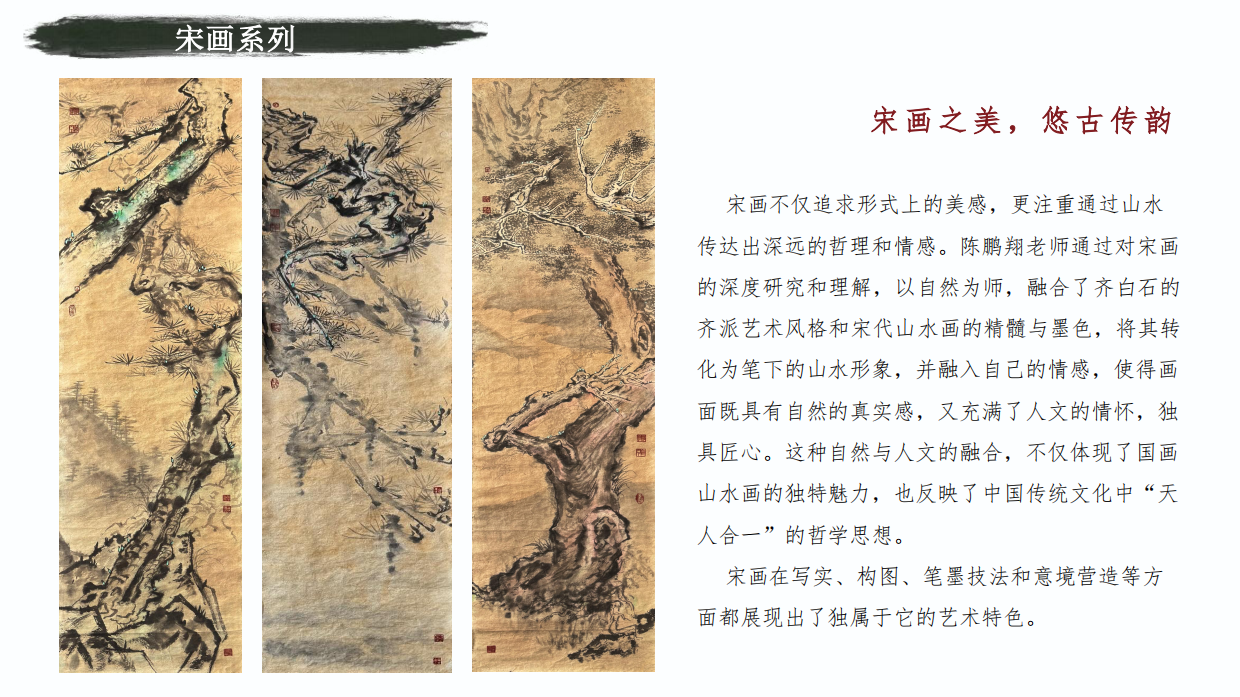 宋画系列
宋画之美，悠古传韵
宋画不仅追求形式上的美感，更注重通过山水
传达出深远的哲理和情感。陈鹏翔老师通过对宋画
的深度研究和理解，以自然为师，融合了齐白石的
齐派艺术风格和宋代山水画的精髓与墨色，将其转
化为笔下的山水形象，并融入自己的情感，使得画
面既具有自然的真实感，又充满了人文的情怀，独
具匠心。这种自然与人文的融合，不仅体现了国画
山水画的独特魅力，也反映了中国传统文化中“天
人合一”的哲学思想。
宋画在写实、构图、笔墨技法和意境营造等方
面都展现出了独属于它的艺术特色。